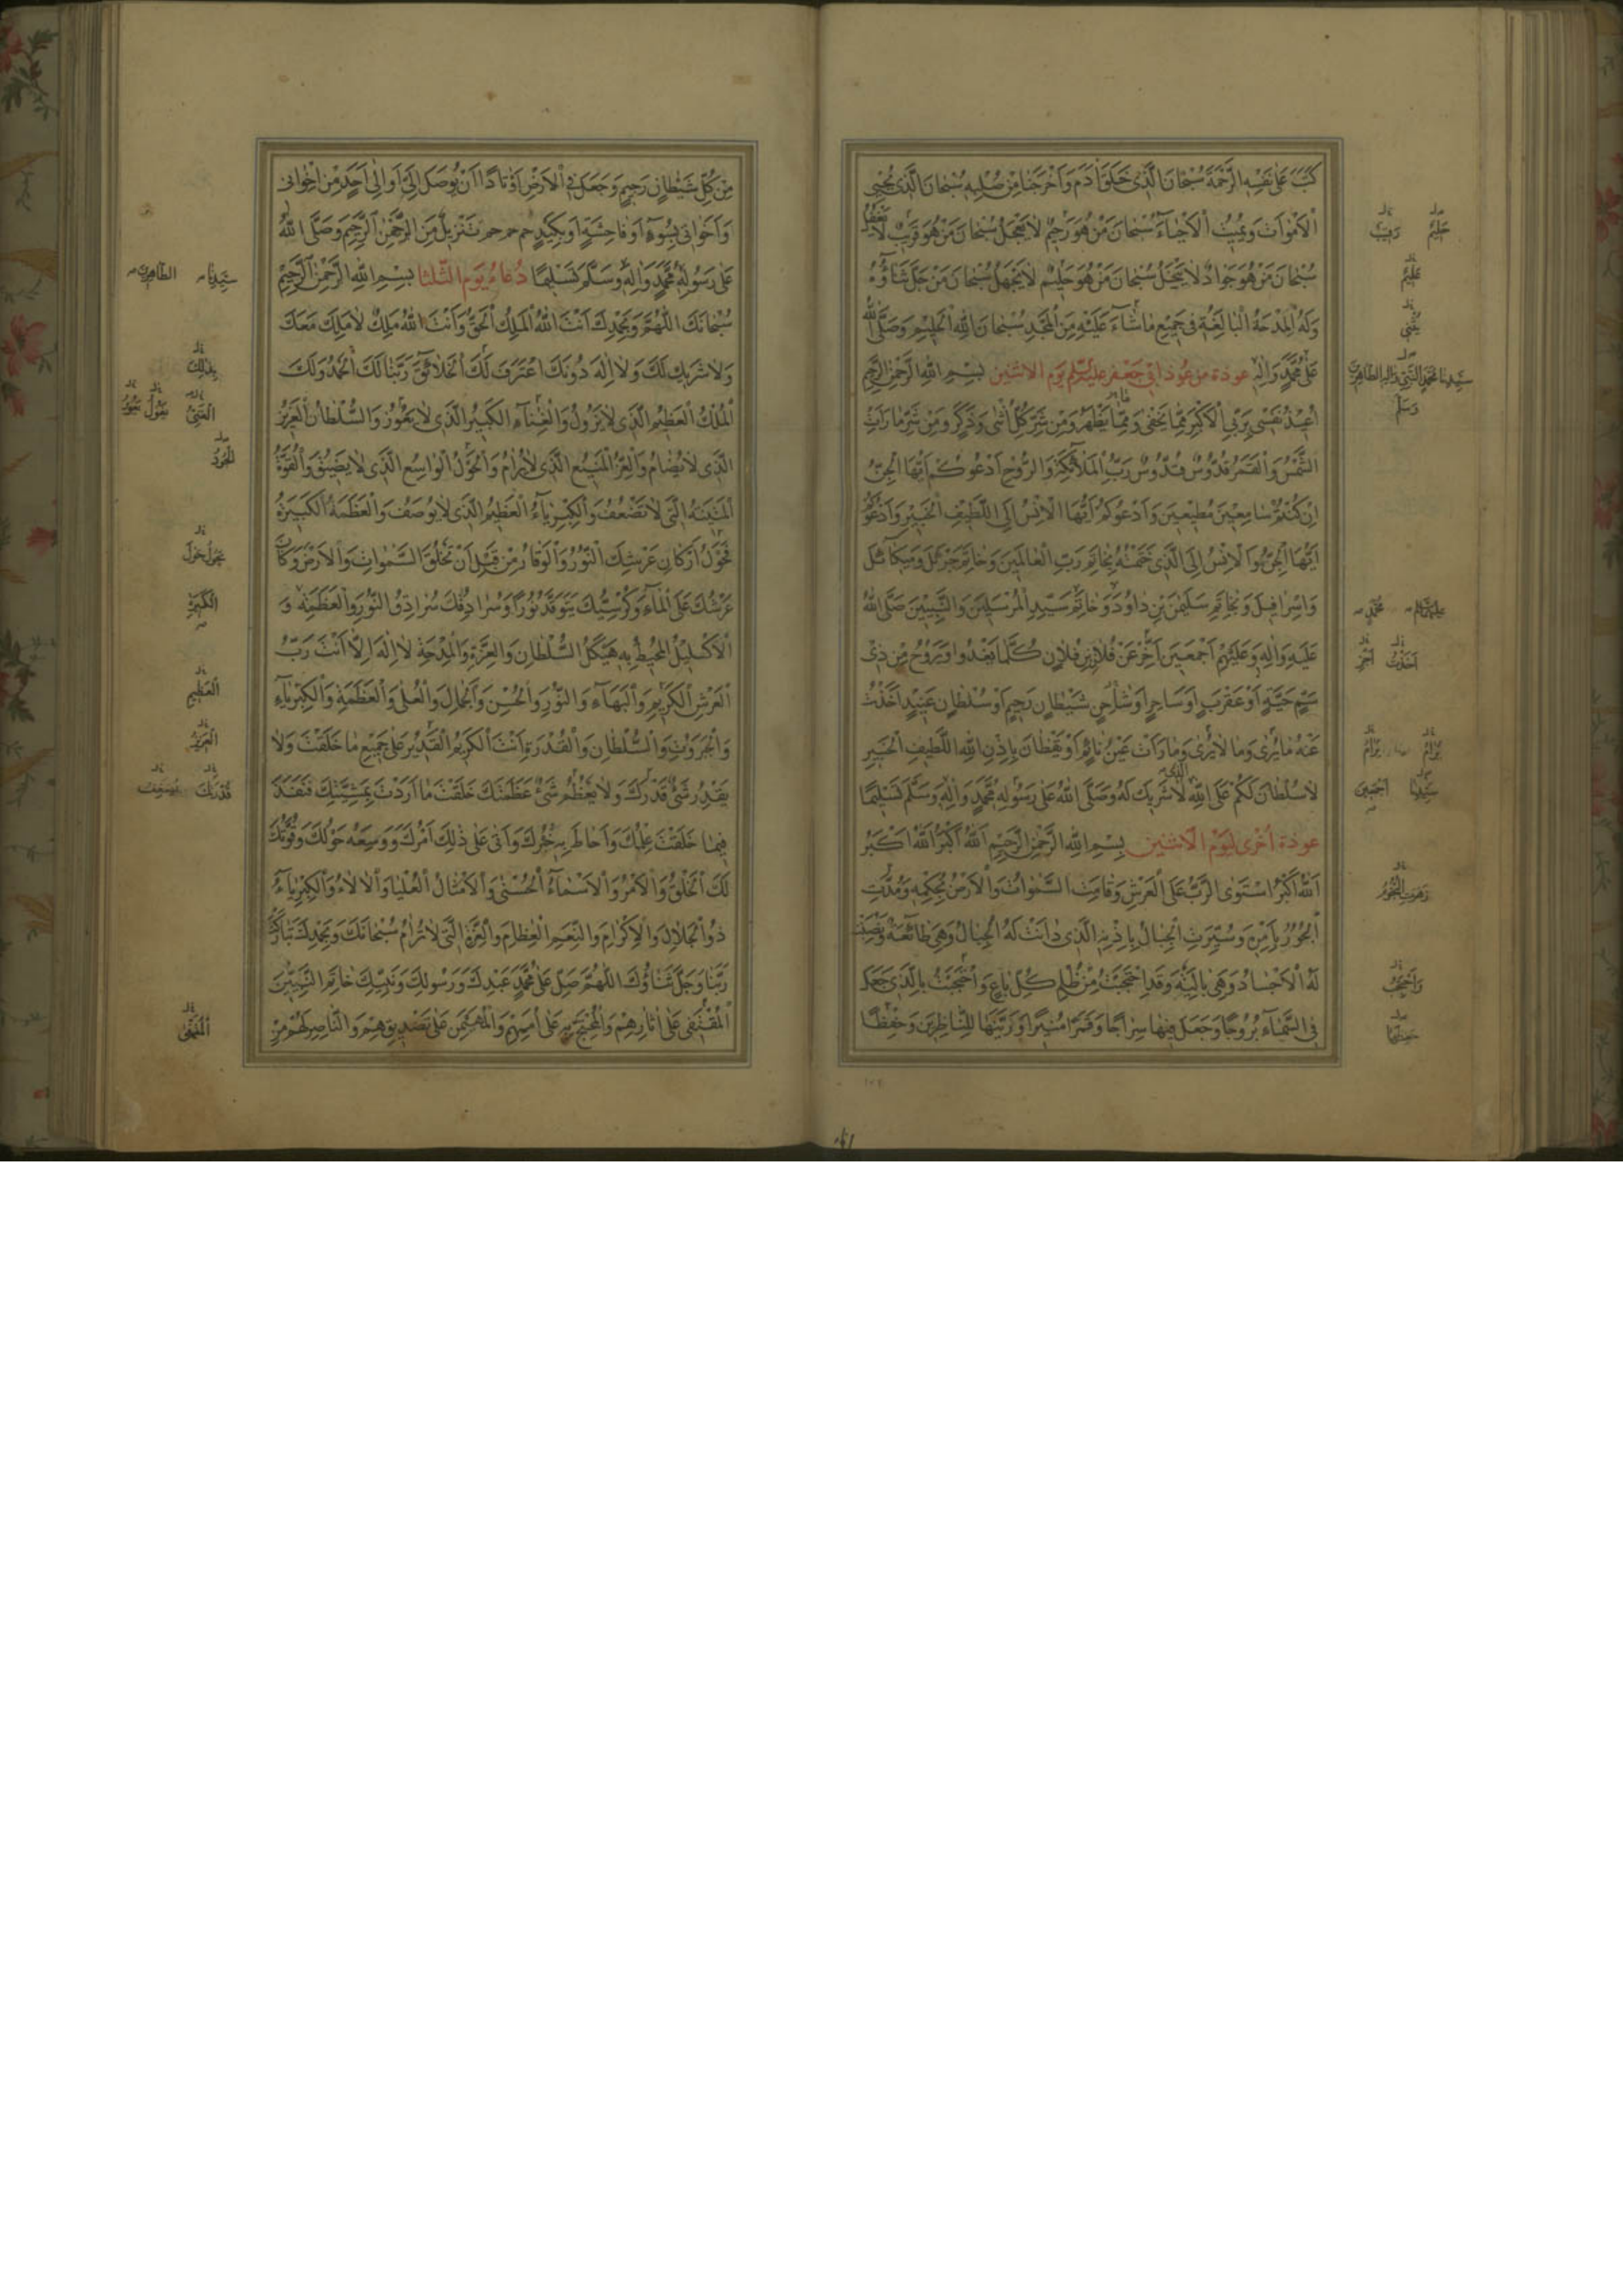 كَتَبَ عَلٰى نَفْسِهِ الرَّحْمَةَ سُبْحَانَ الَّذِى خَلَقَ اٰدَمَ وَاَخْرَجَنَا مِنْ صُلْبِهِ سُبْحَانَ الَّذِى يُحْيِى
الْاَمْوَاتَ وَيُمِيتُ الْاَحْيَاءَ سُبْحَانَ مَنْ هُوَ رَحِيمٌ لَا يَعْجَلُ سُبْحَانَ مَنْ هُوَ قَرِيبٌ لَا يَغْفُلُ
سُبْحَانَ مَنْ هُوَ جَوَادٌ لَا يَبْخَلُ سُبْحَانَ مَنْ هُوَ حَلِيمٌ لَا يَجْهَلُ سُبْحَانَ مَنْ جَلَّ ثَنَاؤُهُ
وَلَهُ الْمِدْحَةُ الْبَالِغَةُ فِى جَمِيعِ مَا شَاءَ عَلَيْهِ مِنَ الْمَجْدِ سُبْحَانَ اللهِ الْحَلِيمِ وَصَلَّى اللهُ
عَلٰى مُحَمَّدٍ وَاٰلِهِ عوذة من عوذ ابى جعفر عليه السلم يوم الاثنين بِسْمِ اللهِ الرَّحْمٰنِ الرَّحِيمِ
اُعِيذُ نَفْسِى بِرَبِّىَ الْاَكْبَرِ مِمَّا يَخْفٰى وَمِمَّا يَظْهَرُ وَمِنْ شَرِّ كُلِّ اُنْثٰى وَذَكَرٍ وَمِنْ شَرِّ مَا رَاَتِ
الشَّمْسُ وَالْقَمَرُ قُدُّوسٌ قُدُّوسٌ رَبُّ الْمَلَائِكَةِ وَالرُّوحِ اَدْعُوكُمْ اَيُّهَا الْجِنُّ
اِنْ كُنْتُمْ سَامِعِينَ مُطِيعِينَ وَاَدْعُوكُمْ اَيُّهَا الْاِنْسُ اِلَى اللَّطِيفِ الْخَبِيرِ وَاَدْعُوكُمْ
اَيُّهَا الْجِنُّ وَالْاِنْسُ اِلَى الَّذِى خَتَمْتُهُ بِخَاتَمِ رَبِّ الْعَالَمِينَ وَخَاتَمِ جَبْرَئِلَ وَمِيكَائِلَ
وَاِسْرَافِيلَ وَبِخَاتَمِ سُلَيْمٰنَ بْنِ دَاوُدَ وَخَاتَمِ سَيِّدِ الْمُرْسَلِينَ وَالنَّبِيِّينَ صَلَّى اللهُ
عَلَيْهِ وَاٰلِهِ وَعَلَيْهِمْ اَجْمَعِينَ اَخِّرْ عَنْ فُلَانِ بْنِ فُلَانٍ كُلَّمَا يَغْدُوا وَيَرُوحُ مِنْ ذِى
سَمِّ حَيَّةٍ اَوْ عَقْرَبٍ اَوْ سَاحِرٍ اَوْ شَيْطَانٍ رَجِيمٍ اَوْ سُلْطَانٍ عَنِيدٍ اَخَذْتُ
عَنْهُ مَا يُرٰى وَمَا لَا يُرٰى وَمَا رَاَتْ عَيْنُ نَائِمٍ اَوْ يَقْظَانَ بِاِذْنِ اللهِ اللَّطِيفِ الْخَبِيرِ
لَا سُلْطَانَ لَكُمْ عَلَى اللهِ لَا شَرِيكَ لَهُ وَصَلَّى اللهُ عَلٰى رَسُولِهِ مُحَمَّدٍ وَاٰلِهِ وَسَلَّمَ تَسْلِيمًا
عوذة اُخْرٰى لِيَوْمِ الْاثنين بِسْمِ اللهِ الرَّحْمٰنِ الرَّحِيمِ اَللهُ اَكْبَرُ اَللهُ اَكْبَرُ
اَللهُ اَكْبَرُ اسْتَوَى الرَّبُّ عَلَى الْعَرْشِ وَقَامَتِ السَّمٰوَاتُ وَالْاَرْضُ بِحُكْمِهِ وَمُدَّتِ
الْبُحُورُ بِاَمْرِهِ وَسُيِّرَتِ الْجِبَالُ بِاِذْنِهِ الَّذِى دَانَتْ لَهُ الْجِبَالُ وَهِىَ طَائِعَةٌ وَنُصِبَتْ
لَهُ الْاَجْسَادُ وَهِىَ بَالِيَةٌ وَقَدِ احْتَجَبْتُ مِنْ ظُلْمِ كُلِّ بَاغٍ وَاحْتَجَبْتُ بِالَّذِى جَعَلَ
فِى السَّمَاءِ بُرُوجًا وَجَعَلَ فِيهَا سِرَاجًا وَقَمَرًا مُنِيرًا وَزَيَّنَهَا لِلنَّاظِرِينَ وَحِفْظًا
حَلِيمٌ رَقِيبٌ
عَلِيمٌ
سَيِّدِنَا مُحَمَّدٍ النَّبِىِّ وَاٰلِهِ الطَّاهِرِينَ
وَسَلَّمَ
اَخَذْتُ
سَيِّدِنَا اَجْمَعِينَ
مِنْ كُلِّ شَيْطَانٍ رَجِيمٍ وَجَعَلَ فِى الْاَرْضِ اَوْتَادًا اَنْ يُوصَلَ اِلَىَّ اَوْ اِلٰى اَحَدٍ مِنْ اِخْوَانِى
وَاَخَوَاتِى بِسُوءٍ اَوْ فَاحِشَةٍ اَوْ بِكَيْدٍ حم حم حم تَنْزِيلٌ مِنَ الرَّحْمٰنِ الرَّحِيمِ وَصَلَّى اللهُ
عَلٰى رَسُولِهِ مُحَمَّدٍ وَاٰلِهِ وَسَلَّمَ تَسْلِيمًا دُعَاءُ يَوْمِ الثّلثا بِسْمِ اللهِ الرَّحْمٰنِ الرَّحِيمِ
سُبْحَانَكَ اللّٰهُمَّ وَبِحَمْدِكَ اَنْتَ اللهُ الْمَلِكُ الْحَقُّ وَاَنْتَ اللهُ مَلِكٌ لَا مَلِكَ مَعَكَ
وَلَا شَرِيكَ لَكَ وَلَا اِلٰهَ دُونَكَ اعْتَرَفَ لَكَ الْخَلَائِقُ رَبَّنَا لَكَ الْحَمْدُ وَلَكَ
الْمُلْكُ الْعَظِيمُ الَّذِى لَا يَزُولُ وَالْغِنَاءُ الْكَبِيرُ الَّذِى لَا يَعُوزُ وَالسُّلْطَانُ الْعَزِيزُ
الَّذِى لَا يُضَامُ وَالْعِزُّ الْمَنِيعُ الَّذِى لَا يُرَامُ وَالْحَوْلُ الْوَاسِعُ الَّذِى لَا يَضِيقُ وَالْقُوَّةُ
الْمَتِينَةُ الَّتِى لَا تَضْعُفُ وَالْكِبْرِيَاءُ الْعَظِيمُ الَّذِى لَا يُوصَفُ وَالْعَظَمَةُ الْكَبِيرَةُ
فَحَوْلَ اَرْكَانِ عَرْشِكَ النُّورُ وَالْوَقَارُ مِنْ قَبْلِ اَنْ تَخْلُقَ السَّمٰوَاتِ وَالْاَرْضَ وَكَانَ
عَرْشُكَ عَلَى الْمَاءِ وَكُرْسِيُّكَ يَتَوَقَّدُ نُورًا وَسُرَادِقُكَ سُرَادِقُ النُّورِ وَالْعَظَمَةِ وَ
الْاِكْلِيلُ الْمُحِيطُ بِهِ هَيْكَلُ السُّلْطَانِ وَالْعِزَّةِ وَالْمِدْحَةِ لَا اِلٰهَ اِلَّا اَنْتَ رَبُّ
الْعَرْشِ الْكَرِيمِ وَالْبَهَاءِ وَالنُّورِ وَالْحُسْنِ وَالْجَمَالِ وَالْعُلٰى وَالْعَظَمَةِ وَالْكِبْرِيَاءِ
وَالْجَبَرُوتِ وَالسُّلْطَانِ وَالْقُدْرَةِ اَنْتَ الْكَرِيمُ الْقَدِيرُ عَلٰى جَمِيعِ مَا خَلَقْتَ وَلَا
يَقْدِرُ شَىْءٌ قَدْرَكَ وَلَا يَعْظُمُ شَىْءٌ عَظَمَتَكَ خَلَقْتَ مَا اَرَدْتَ بِمَشِيَّتِكَ فَنَفَذَ
فِيمَا خَلَقْتَ عِلْمُكَ وَاَحَاطَ بِهِ خُبْرُكَ وَاَتٰى عَلٰى ذٰلِكَ اَمْرُكَ وَوَسِعَهُ حَوْلُكَ وَقُوَّتُكَ
لَكَ الْخَلْقُ وَالْاَمْرُ وَالْاَسْمَاءُ الْحُسْنٰى وَالْاَمْثَالُ الْعُلْيَا وَالْاٰلَاءُ وَالْكِبْرِيَاءُ
ذُو الْجَلَالِ وَالْاِكْرَامِ وَالنِّعَمِ الْعِظَامِ وَالْعِزَّةِ الَّتِى لَا تُرَامُ سُبْحَانَكَ وَبِحَمْدِكَ تَبَارَكْتَ
رَبَّنَا وَجَلَّ ثَنَاؤُكَ اللّٰهُمَّ صَلِّ عَلٰى مُحَمَّدٍ عَبْدِكَ وَرَسُولِكَ وَنَبِيِّكَ خَاتَمِ النَّبِيِّينَ
الْمُقَفّٰى عَلٰى اٰثَارِهِمْ وَالْمُحْتَجِّ بِهِ عَلٰى اُمَمِهِمْ وَالْمُهَيْمِنِ عَلٰى تَصْدِيقِهِمْ وَالنَّاصِرِ لَهُمْ مِنْ
سَيِّدِنَا الطَّاهِرِينَ
بِذٰلِكَ
الْعَظِيمِ
الْعَزِيزُ
قُدْرَتَكَ